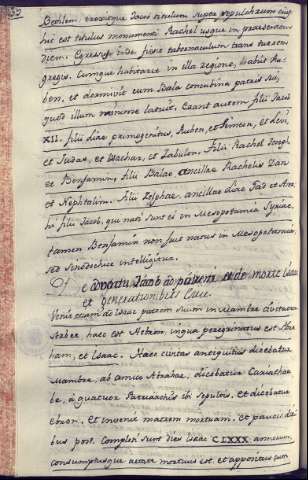 Bethlem, erexitque Jacob titulum super sepulchrum eius,
hic est titulus monumenti Rachel usque in praesentem
diem. Egressus inde fixit tabernaculum trans turrem
gregis. Cumque habitaret in illa regione, habiit Ru-
ben, et dormivit cum Bala concubina patris sui,
quod illum minime latuit. Erant autem filii Jacob
XII. filii Liae primogenitus Ruben, et Simeon, et Levi,
et Judas, et Isachar, et Zabulon. Filii Rachel Joseph
et Benjamin, filii Balae ancillae Rachelis Dan
et Nephtalim. Filii Zelphae ancillae Liae Gad et Aser
hi filii Jacob, qui nati sunt ei in Mesopotamia Syriae,
tamen Benjamin non fuit natus in Mesopotamia,
sed Sinodochice intelligitur.
De adventu Jacob ad patrem et de morte Isaac
et generationibus Esau.
Venit etiam ad Isaac patrem suum in Mambre civitatem
Arbee, haec est Hebron, in qua peregrinatus est Abra-
ham, et Isaac. Haec civitas antiquitus dicebatur
Mambre, ab amico Abrahae, dicebatur Cariatharbe
be, a quatuor Patriarchis ibi sepultis, et dicebatur
ebron. et invenit matrem mortuam. et paucis die-
bus post. Completi sunt dies Isaac CLXXX. annorum,
consumptusque aetate mortuus est, et appositus cum